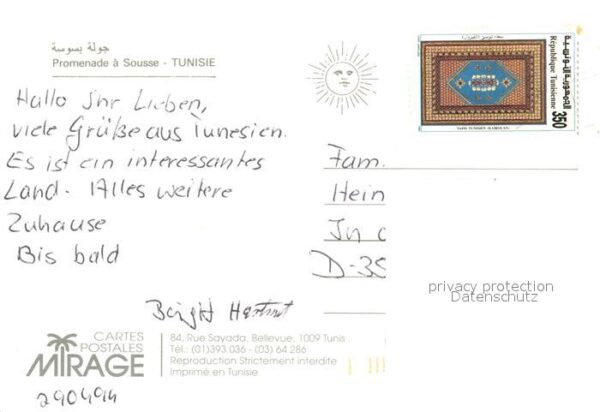 جولة بسوسة
Promenade à Sousse - TUNISIE
Hallo Ihr Lieben,
viele Grüße aus Tunesien.
Es ist ein interessantes
Land. Alles weitere
Zuhause
Bis bald
Birgit Hartmut
الجمهورية التونسية
République Tunisienne
350
TAPIS TUNISIEN (KAIROUAN)
Fam.
Hein
In
D-35
privacy protection
Datenschutz
CARTES
POSTALES
MIRAGE
84, Rue Sayada, Bellevue, 1009 Tunis
Tél.: (01)393 036 - (03) 64 286
Reproduction Strictement interdite
Imprimé en Tunisie
290494